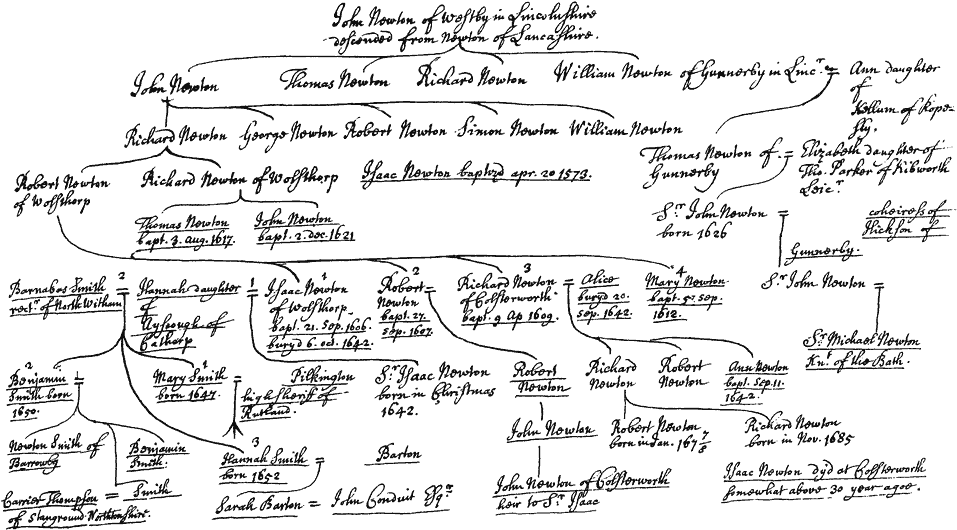 John Newton of Westby in Lincolnshire
descended from Newton of Lancashire.
John Newton
Thomas Newton
Richard Newton
William Newton of Gunnerby in Linc.r =
Ann daughter
of
Kellum of Rope-
sly.
Richard Newton
George Newton
Robert Newton
Simon Newton
William Newton
Thomas Newton of =
Gunnerby
Elizabeth daughter of
Tho. Parker of Kibworth
Leic.r
Robert Newton
of Wolsthorp
Richard Newton of Wolsthorp
Isaac Newton baptizd apr. 20 1573.
Thomas Newton
bapt. 3. Aug. 1617.
John Newton
bapt. 2. dec. 1621
S.r John Newton =
born 1626
coheiress of
Hickson of
Gunnerby.
S.r John Newton =
S.r Michael Newton
Kn.t of the Bath.
2
Barnabas Smith =
rect.r of North Witham
Hannah daughter
of
Ayscough of
1
=
1
Isaac Newton
of Wolsthorp
bapt. 21. Sep. 1606
buryd 6. oct. 1642.
2
Robert =
Newton
bapt. 27.
Sep. 1607.
3
Richard Newton =
of Colsterworth
bapt. 9 Ap 1609.
Alice
buryd 20.
Sep. 1642.
4
Mary Newton
bapt. 5. Sep.
1612.
2
Benjamin =
Smith born
1650.
1
Mary Smith =
born 1647.
Pilkington
high sheriff of
Rutland.
S.r Isaac Newton
born in Christmas
1642.
Robert
Newton
Richard
Newton
Robert
Newton
Ann Newton
bapt. Sep. 11.
1642.
John Newton
Robert Newton
born in Jan. 167 7/8
Richard Newton
born in Nov. 1685
Newton Smith of
Barrowby
Benjamin
Smith.
3
Hannah Smith =
born 1652
Barton
Thompson = Smith
of Stanground
Sarah Barton = John Conduit Esq.r
John Newton of Colsterworth
heir to S.r Isaac
Isaac Newton dyd at Colsterworth
somewhat above 30 year agoe.